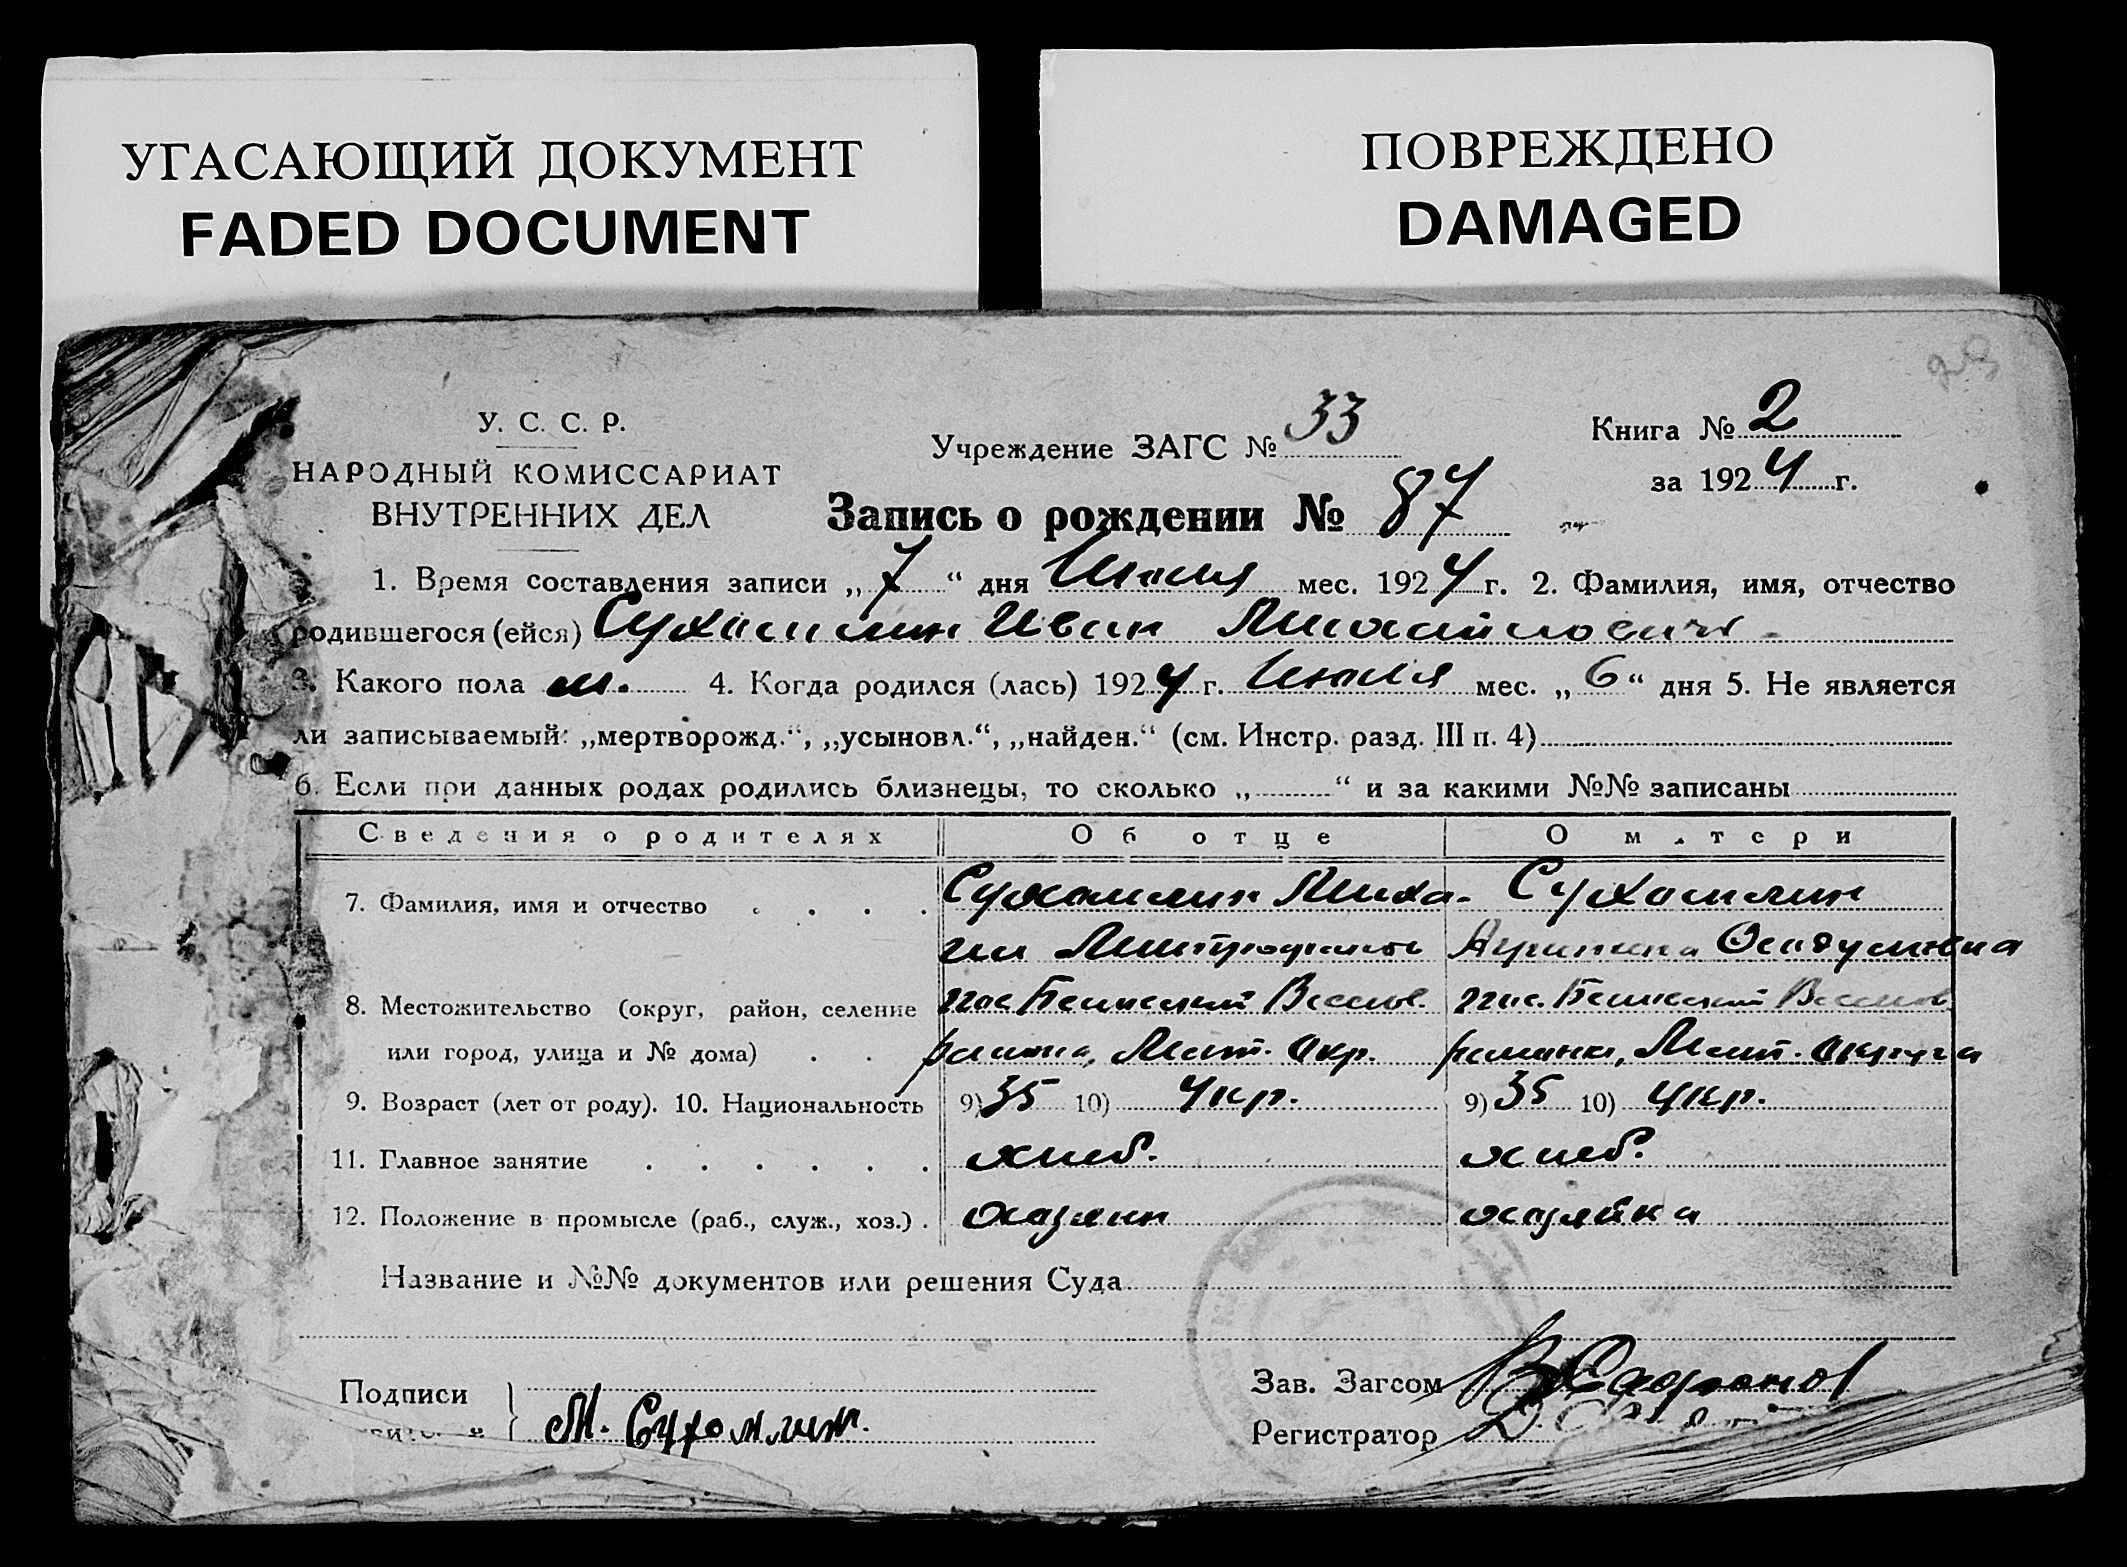 УГАСАЮЩИЙ ДОКУМЕНТ
FADED DOCUMENT
ПОВРЕЖДЕНО
DAMAGED
У. С. С. Р.
НАРОДНЫЙ КОМИССАРИАТ
ВНУТРЕННИХ ДЕЛ
Учреждение ЗАГС № 33
Книга № 2
за 1924 г.
Запись о рождении № 87
1. Время составления записи „7“ дня Июля мес. 1924 г. 2. Фамилия, имя, отчество
родившегося (ейся) Сухомлин Иван Михайлович
3. Какого пола м. 4. Когда родился (лась) 1924 г. Июля мес. „6“ дня 5. Не является
ли записываемый: „мертворожд.“, „усыновл.“, „найден.“ (см. Инстр. разд. III п. 4)
6. Если при данных родах родились близнецы, то сколько „ “ и за какими №№ записаны
Сведения о родителях Об отце О матери
7. Фамилия, имя и отчество Сухомлин Миха- Сухомлин
ил Митрофанов
8. Местожительство (округ, район, селение
или город, улица и № дома) района, Окр. района, Округа
9. Возраст (лет от роду). 10. Национальность 9) 35 10) Укр. 9) 35 10) Укр.
11. Главное занятие хлеб. хлеб.
12. Положение в промысле (раб., служ., хоз.) хозяин хозяйка
Название и №№ документов или решения Суда
Подписи
М. Сухомлин.
Зав. Загсом В Сафонов
Регистратор